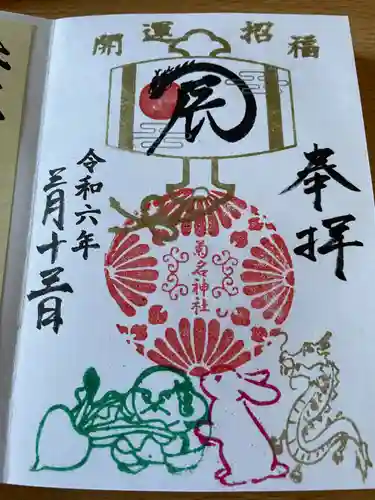 開運招福
辰
奉拝
菊名神社
令和六年
三月十三日